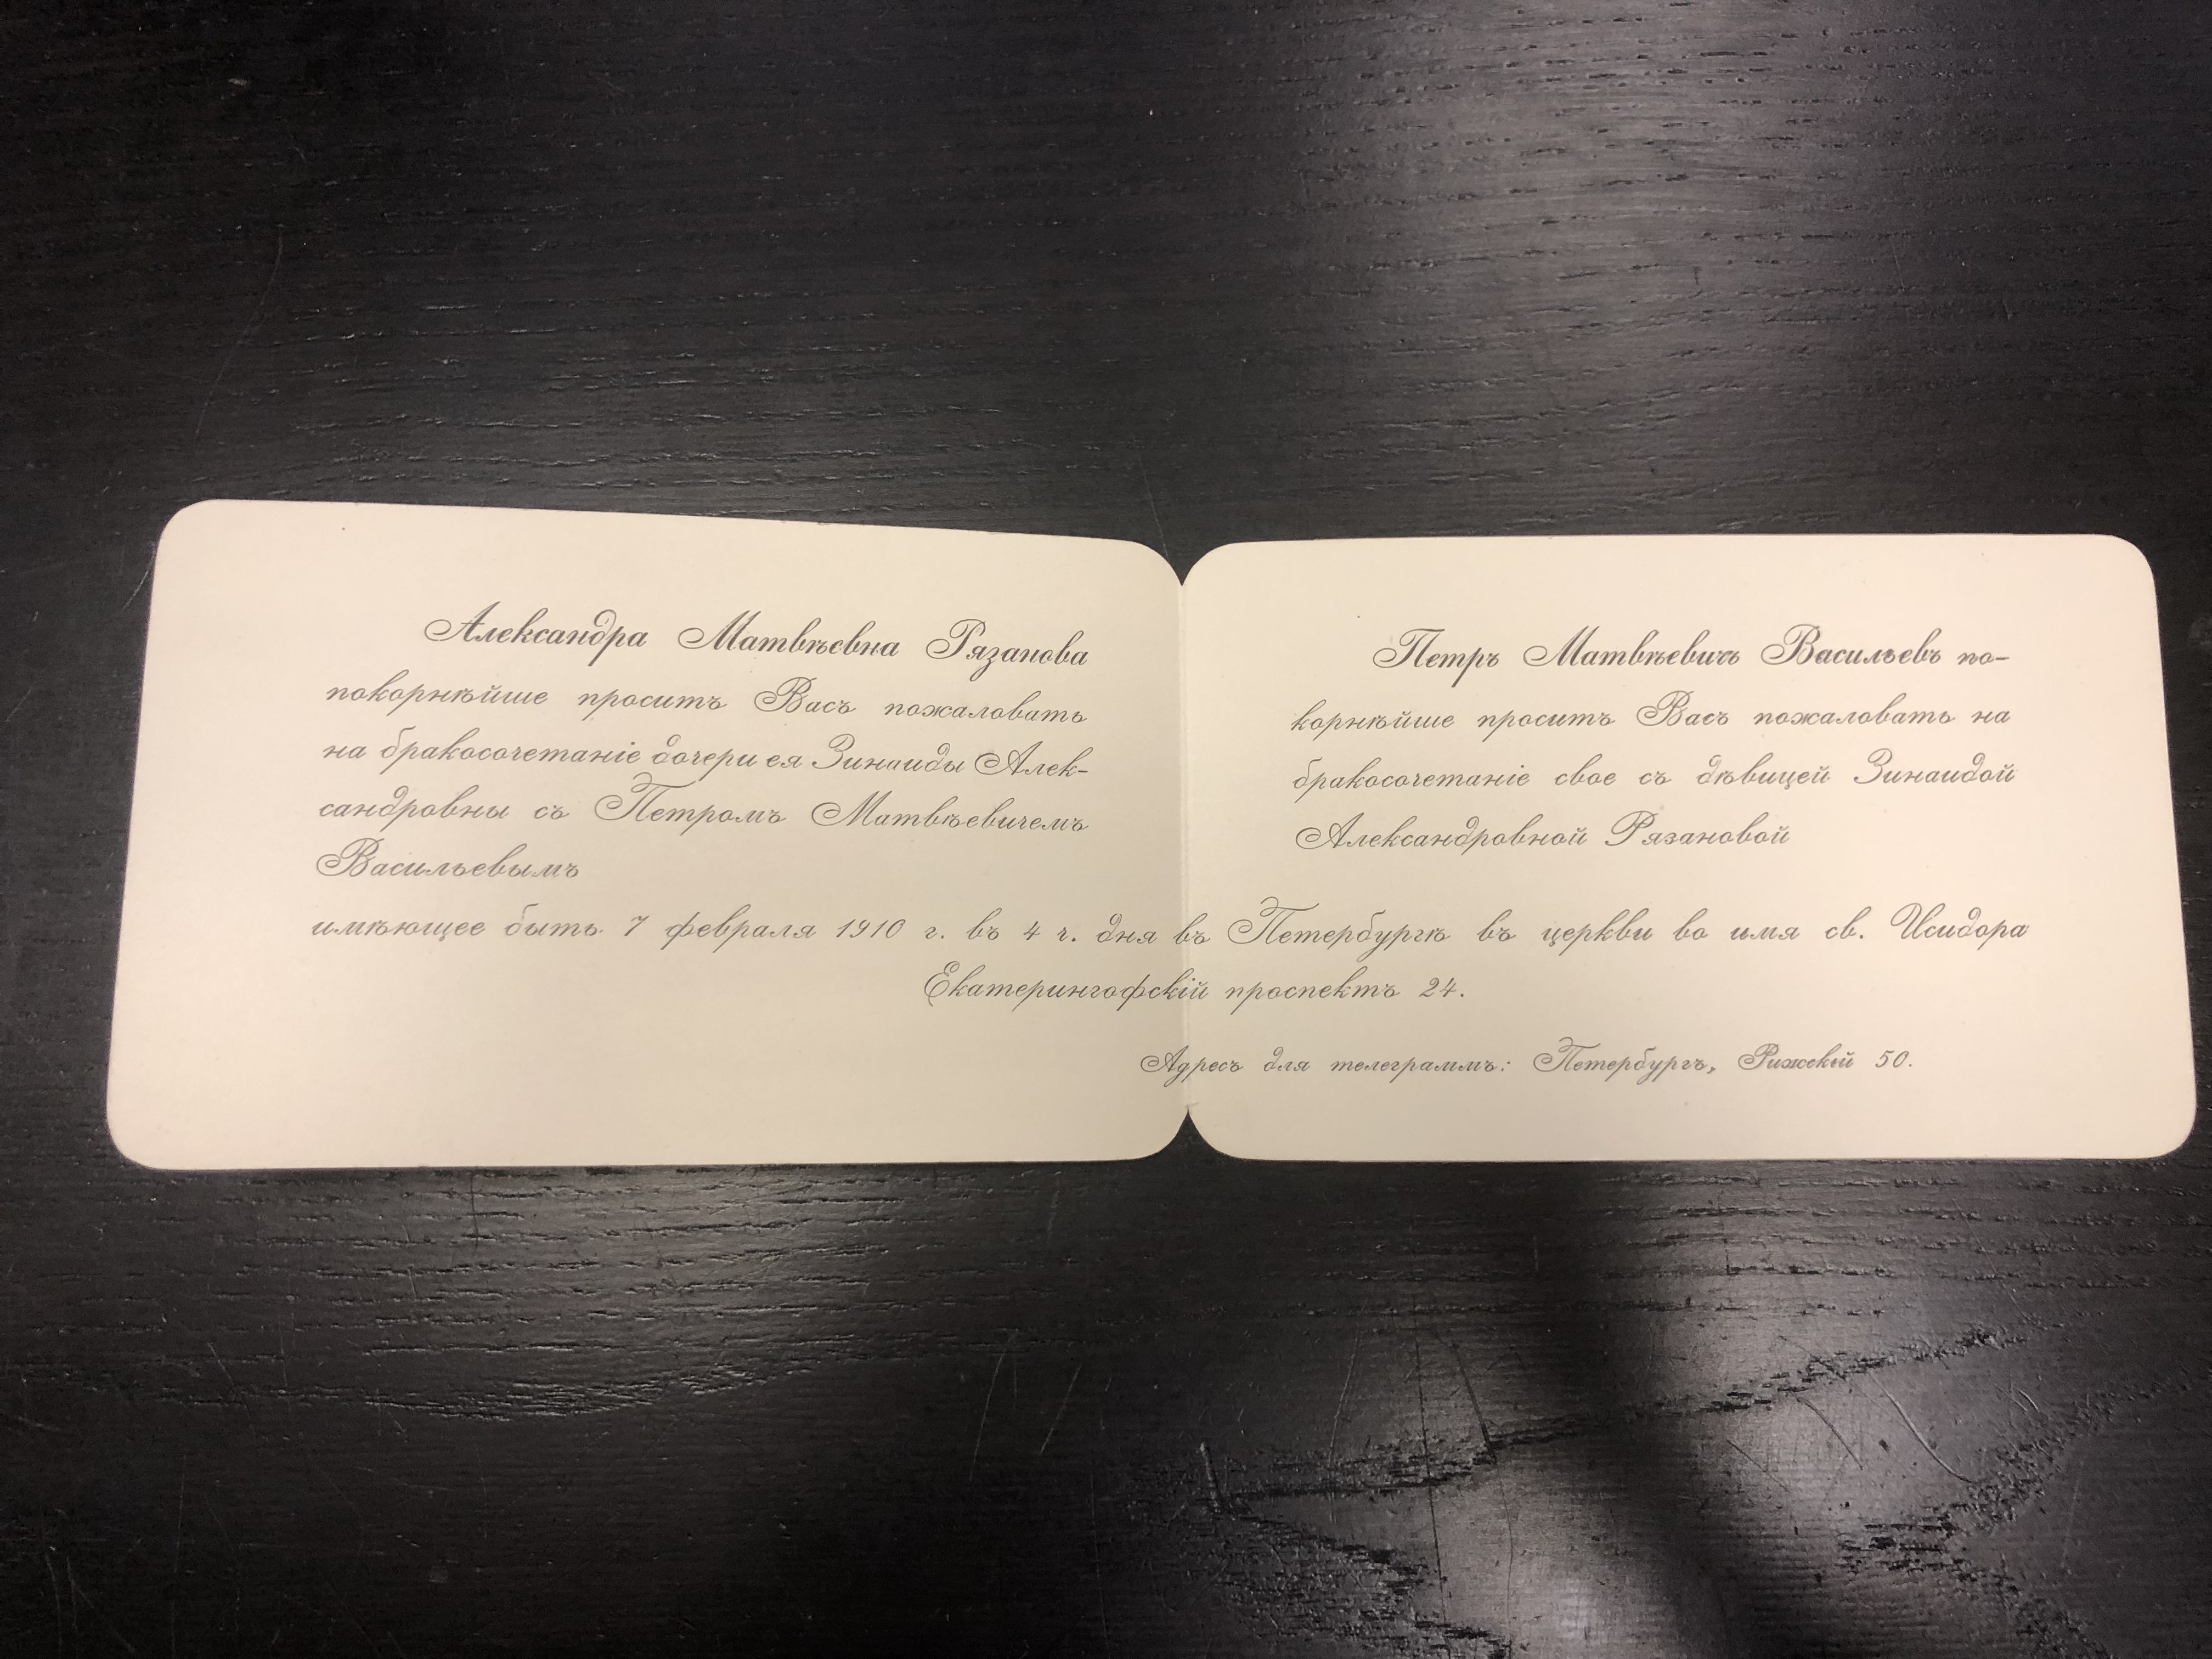 Александра Матвѣевна Рязанова
покорнѣйше проситъ Васъ пожаловать
на бракосочетаніе дочери ея Зинаиды Алек-
сандровны съ Петромъ Матвѣевичемъ
Васильевымъ
Петръ Матвѣевичъ Васильевъ по-
корнѣйше проситъ Васъ пожаловать на
бракосочетаніе свое съ дѣвицей Зинаидой
Александровной Рязановой
имѣющее быть 7 февраля 1910 г. въ 4 ч. дня въ Петербургѣ въ церкви во имя св. Исидора
Екатерингофскій проспектъ 24.
Адресъ для телеграммъ: Петербургъ, Рижскій 50.